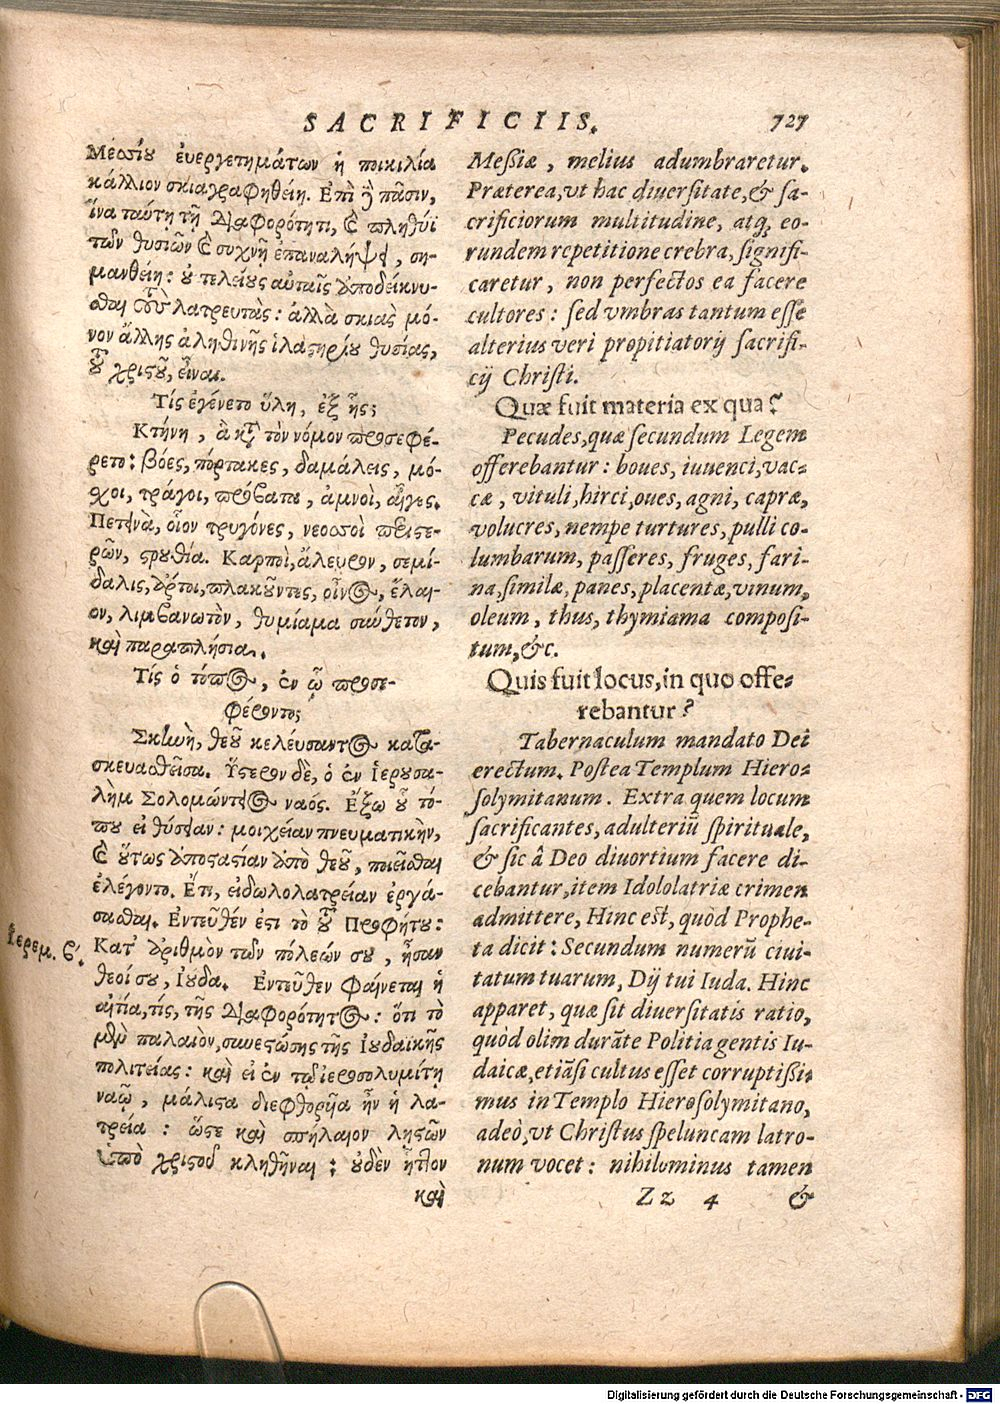 SACRIFICIIS. 727
Μεσσίου ἐυεργετημάτων ἡ ποικιλία
κάλλιον σκιαγραφηθείη. Ἐπὶ ἢ πᾶσιν,
ἵνα ταύτῃ τῇ Διαφορότητι, καὶ πληθύϊ
τῶν θυσιῶν καὶ συχνῇ ἐπαναλήψει, ση-
μανθείη: οὐ τελείους αὐταῖς ἀποδείκνυ-
σθαι τοὺς λατρευτὰς: ἀλλὰ σκιὰς μό-
νον ἄλλης ἀληθινῆς ἱλαστηρίου θυσίας,
τοῦ χριστοῦ, εἶναι.
Τίς ἐγένετο ὕλη, ἐξ ἧς;
Κτήνη, ἃ κατὰ τὸν νόμον προσεφέ-
ρετο: βόες, πόρτακες, δαμάλεις, μό-
χοι, τράγοι, πρόβατα, ἀμνοὶ, αἶγες.
Πετεινὰ, οἷον τρυγόνες, νεοσσοὶ περιστε-
ρῶν, στρουθία. Καρποὶ, ἄλευρον, σεμί-
δαλις, ἄρτοι, πλακοῦντες, οἶνος, ἔλαι-
ον, λιμβανωτὸν, θυμίαμα σύνθετον,
καὶ παραπλήσια.
Τίς ὁ τόπος, ἐν ᾧ προσε-
φέροντο;
Σκηνὴ, θεοῦ κελέυσαντος κατα-
σκευασθεῖσα. Ὕστερον δὲ, ὁ ἐν Ἱερουσα-
λὴμ Σολομώντειος ναός. Ἔξω οὗ τό-
που εἰ θύσειαν: μοιχείαν πνευματικὴν,
καὶ οὕτως ἀποστασίαν ἀπὸ θεοῦ, ποιεῖσθαι
ἐλέγοντο. Ἔτι, εἰδωλολατρείαν ἐργά-
σασθαι. Ἐντεῦθέν ἐστι τὸ τοῦ Προφήτου:
Ἱερεμ. β. Κατ' ἀριθμὸν τῶν πόλεών σου, ἦσαν
θεοί σου, Ἰούδα. Ἐντεῦθεν φαίνεται ἡ
αἰτία, τίς, τῆς Διαφορότητος: ὅτι τὸ
μὲν παλαιὸν, συνεστώσης τῆς Ἰουδαϊκῆς
πολιτείας: καὶ εἰ ἐν τῷ ἱεροσολυμίτῃ
ναῷ, μάλιστα διεφθορυῖα ἦν ἡ λα-
τρεία: ὥστε καὶ σπήλαιον λῃστῶν
ὑπὸ χριστοῦ κληθῆναι: οὐδὲν ἧττον
καὶ
Meßiæ, melius adumbraretur.
Præterea, vt hac diuersitate, & sa-
crificiorum multitudine, atq́; eo-
rundem repetitione crebra, signifi-
caretur, non perfectos ea facere
cultores: sed vmbras tantum esse
alterius veri propitiatorij sacrifi-
cij Christi.
Quæ fuit materia ex qua?
Pecudes, quæ secundum Legem
offerebantur: boues, iuuenci, vac-
cæ, vituli, hirci, oues, agni, capræ,
volucres, nempe turtures, pulli co-
lumbarum, passeres, fruges, fari-
na, similæ, panes, placentæ, vinum,
oleum, thus, thymiama composi-
tum, &c.
Quis fuit locus, in quo offe-
rebantur?
Tabernaculum mandato Dei
erectum. Postea Templum Hiero-
solymitanum. Extra quem locum
sacrificantes, adulteriũ spirituale,
& sic â Deo diuortium facere di-
cebantur, item Idololatriæ crimen
admittere, Hinc est, quòd Prophe-
ta dicit: Secundum numerũ ciui-
tatum tuarum, Dij tui Iuda. Hinc
apparet, quæ sit diuersitatis ratio,
quòd olim durãte Politia gentis Iu-
daicæ, etiãsi cultus esset corruptißi-
mus in Templo Hierosolymitano,
adeò, vt Christus speluncam latro-
num vocet: nihilominus tamen
Zz 4 &
Digitalisierung gefördert durch die Deutsche Forschungsgemeinschaft - DFG